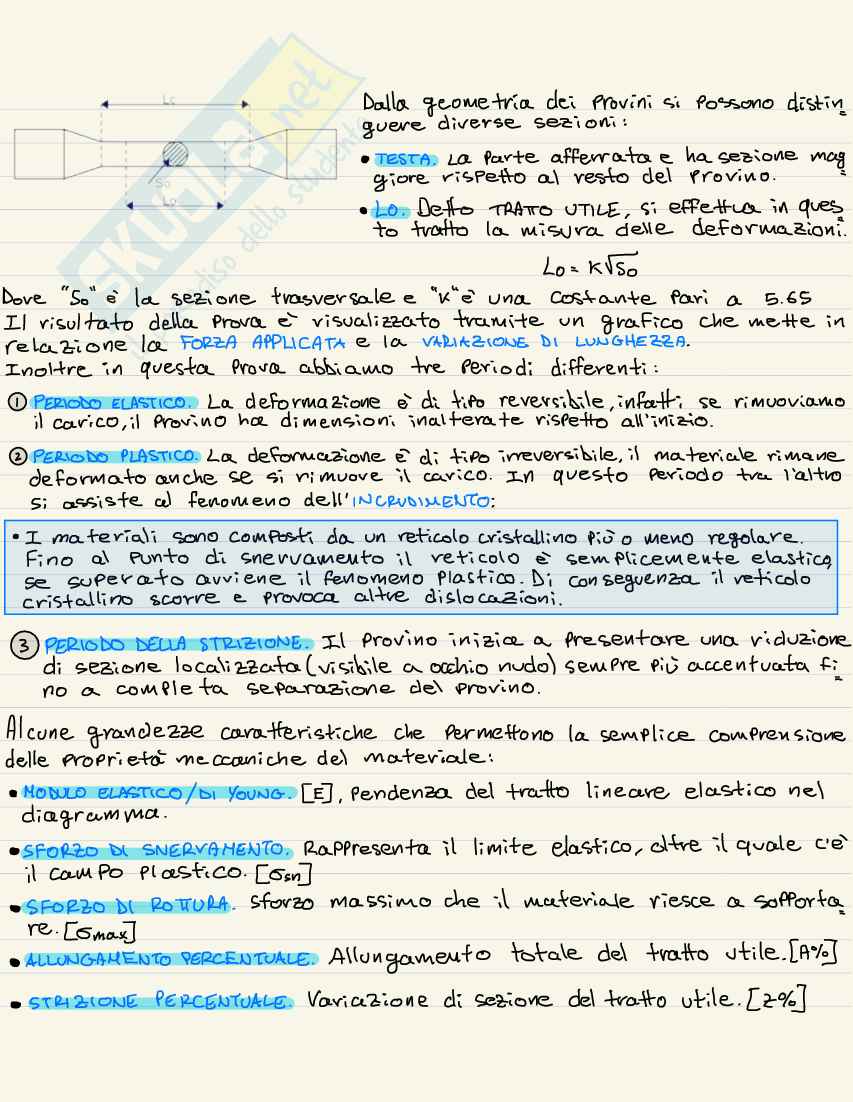 Lc
So
Lo
SKUOLA.net
Dalla geometria dei provini si possono distin
guere diverse sezioni:
• TESTA. La parte afferrata e ha sezione mag
giore rispetto al resto del provino.
• LO. Detto TRATTO UTILE, si effettua in ques
to tratto la misura delle deformazioni.
Lo = K√So
Dove "So" è la sezione trasversale e "K" è una costante pari a 5.65
Il risultato della prova è visualizzato tramite un grafico che mette in
relazione la FORZA APPLICATA e la VARIAZIONE DI LUNGHEZZA.
Inoltre in questa prova abbiamo tre periodi differenti:
① PERIODO ELASTICO. La deformazione è di tipo reversibile, infatti se rimuoviamo
il carico, il provino ha dimensioni inalterate rispetto all'inizio.
② PERIODO PLASTICO. La deformazione è di tipo irreversibile, il materiale rimane
deformato anche se si rimuove il carico. In questo periodo tra l'altro
si assiste al fenomeno dell'INCRUDIMENTO:
• I materiali sono composti da un reticolo cristallino più o meno regolare.
Fino al punto di snervamento il reticolo è semplicemente elastico,
se superato avviene il fenomeno plastico. Di conseguenza il reticolo
cristallino scorre e provoca altre dislocazioni.
③ PERIODO DELLA STRIZIONE. Il provino inizia a presentare una riduzione
di sezione localizzata (visibile a occhio nudo) sempre più accentuata fi
no a completa separazione del provino.
Alcune grandezze caratteristiche che permettono la semplice comprensione
delle proprietà meccaniche del materiale:
• MODULO ELASTICO/DI YOUNG. [E], pendenza del tratto lineare elastico nel
diagramma.
• SFORZO DI SNERVAMENTO. Rappresenta il limite elastico, oltre il quale c'è
il campo plastico. [σsn]
• SFORZO DI ROTTURA. sforzo massimo che il materiale riesce a sopporta
re. [σmax]
• ALLUNGAMENTO PERCENTUALE. Allungamento totale del tratto utile. [A%]
• STRIZIONE PERCENTUALE. Variazione di sezione del tratto utile. [Z%]